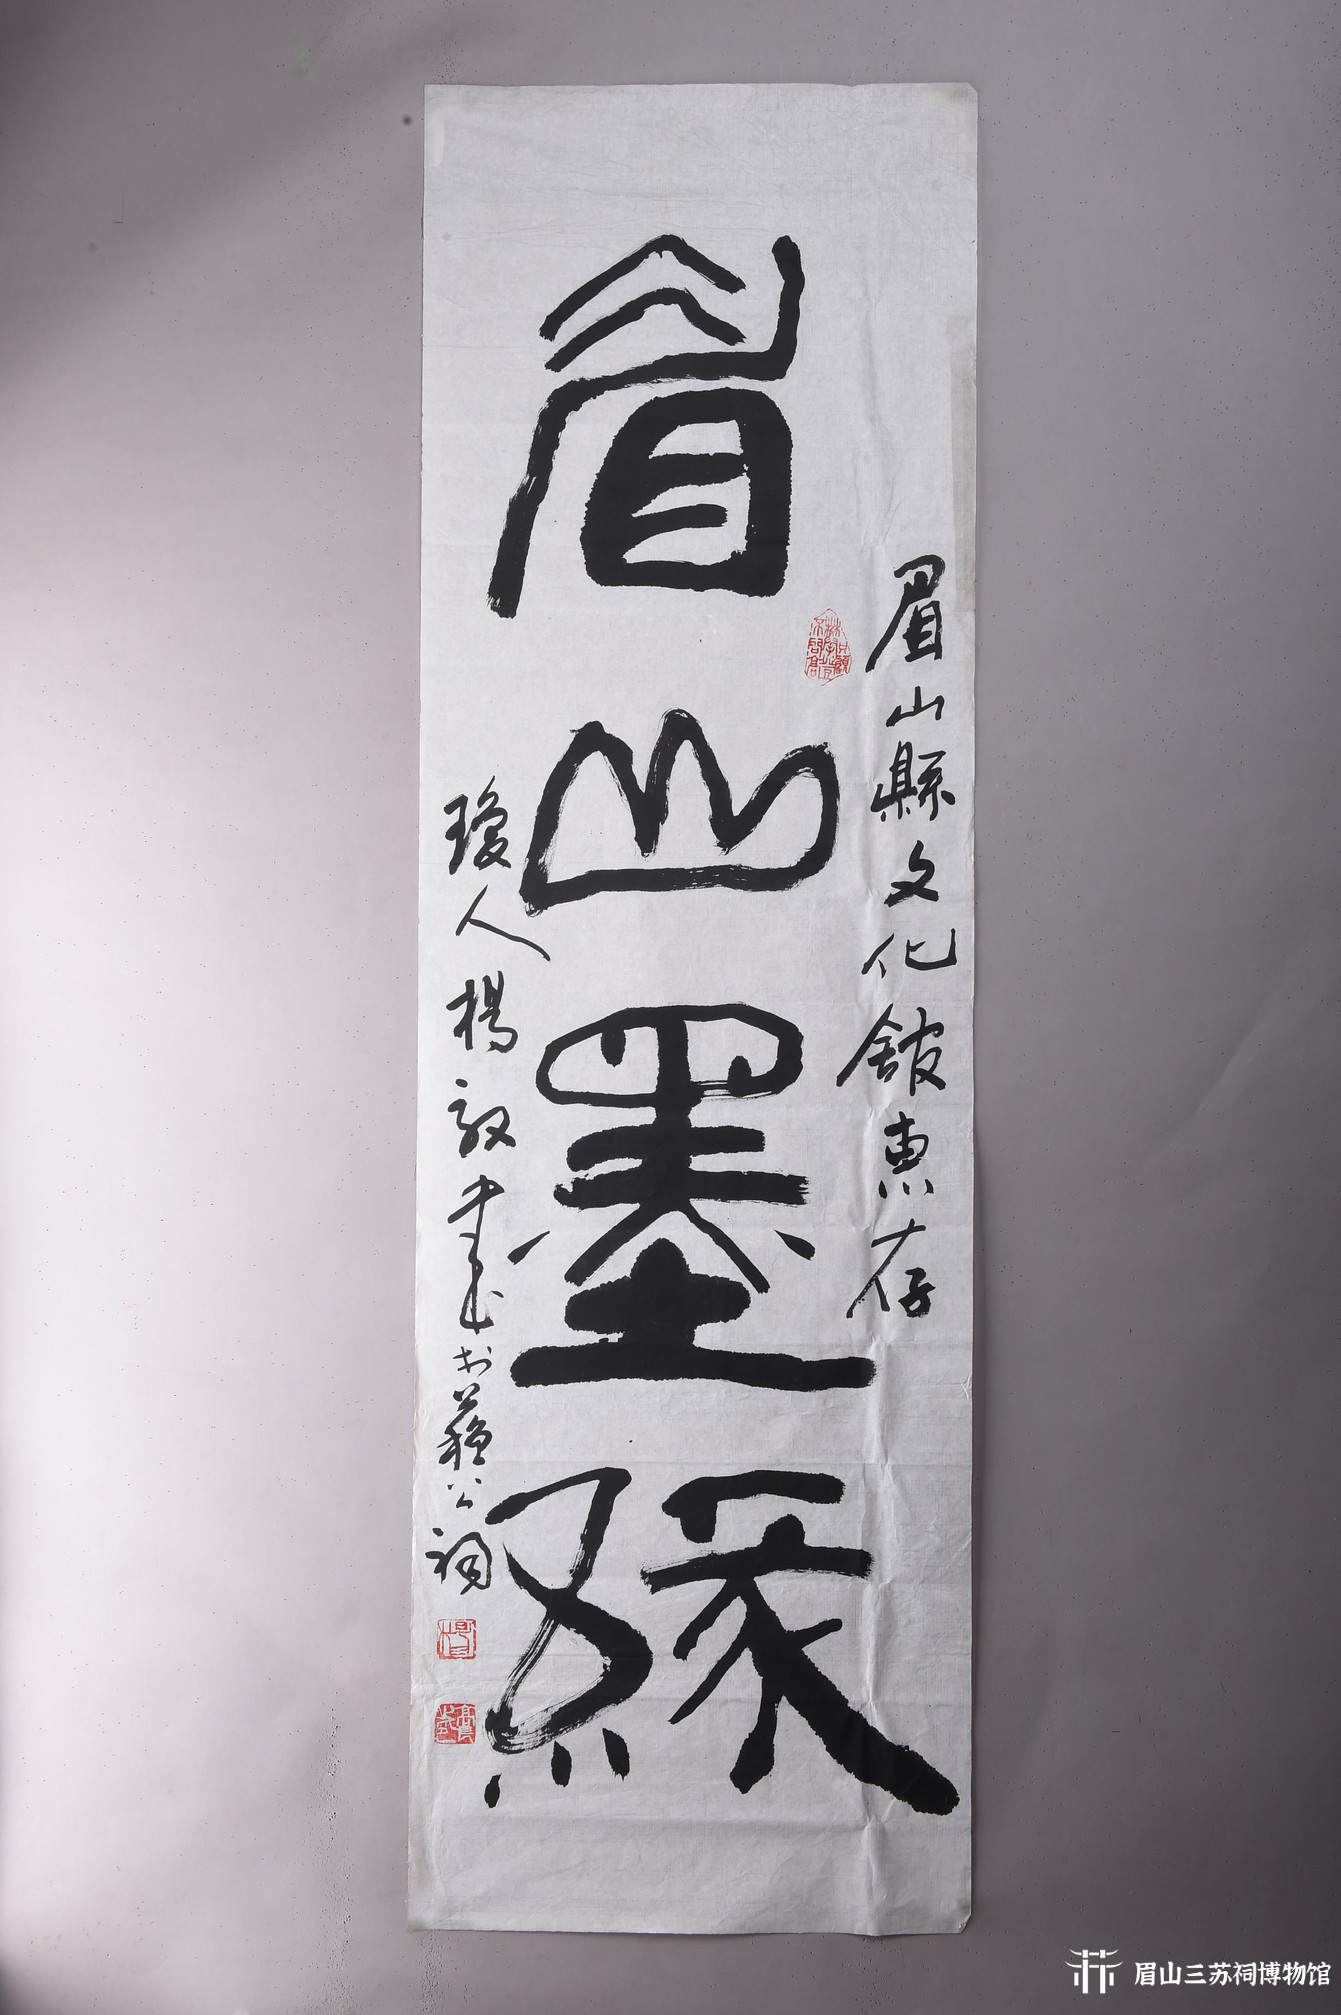 眉山縣文化館惠存
眉山墨緣
瓊人楊毅中書於蘇公祠
眉山三苏祠博物馆